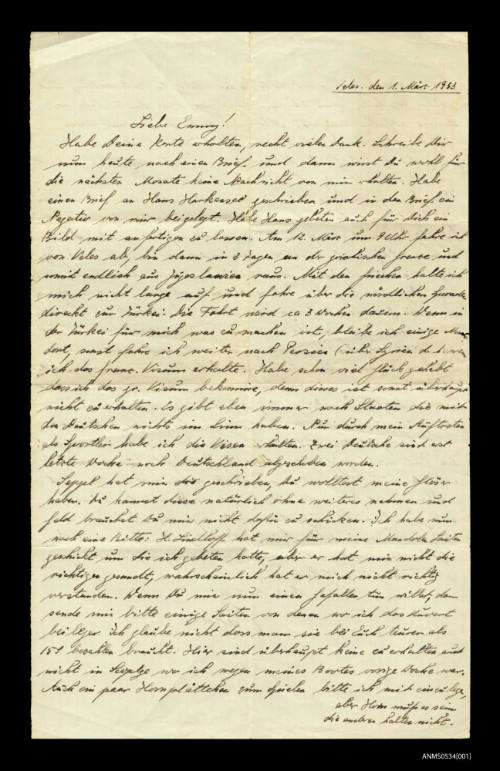 Veles. den 1. März 1933
Liebe Emmy!
Habe Deine Karte erhalten, recht vielen Dank. Schreibe Dir
nun heute noch einen Brief und dann wirst Du wohl für
die nächsten Monate keine Nachricht von mir erhalten. Habe
einen Brief an Hans geschrieben und in den Brief ein
Negativ von mir beigelegt. Habe Hans gebeten auch für dich ein
Bild mit anfertigen zu lassen. Am 12. März um 9 Uhr fahre ich
von Veles ab, bin dann in 3 Tagen an der griechischen Grenze und
somit endlich aus Jugoslawien raus. Mit den Griechen halte ich
mich nicht lange auf und fahre über die nördlichen
direckt zur Türkei. Die Fahrt wird ca 3 Wochen dauern. Wenn in
der Türkei für mich was zu machen ist, bleibe ich einige
dort, sonst fahre ich weiter nach Persien (über Syrien
ich das franz. Visum erhalte. Habe sehr viel Glück gehabt
dass ich das gr. Visum bekomme, denn dieses ist sonst überhaupt
nicht zu erhalten. Es gibt eben immer noch Staaten die mit
den Deutschen nichts im Sinn haben. Nur durch mein Auftreten
als Sportler habe ich die Visen erhalten. Zwei Deutsche sind erst
letzte Woche nach Deutschland abgeschoben worden.
Seppl hat mir geschrieben, Du wolltest meine Gläser
haben. Du kannst diese natürlich ohne weiteres nehmen und
Geld brauchst Du mir nicht dafür zu schicken. Ich habe nun
noch eine Bitte: H. hat mir für meine Mandola Saiten
geschickt um die ich gebeten hatte, aber er hat mir nicht die
richtigen gesandt, wahrscheinlich hat er mich nicht richtig
verstanden. Wenn Du mir nun einen Gefallen tun willst, dan
sende mir bitte einige Saiten von denen wo ich das Kuvert
beilege. Ich glaube nicht dass man sie bei Euch teurer als
15 bezahlen braucht. Hier sind überhaupt keine zu erhalten auch
nicht in Skoplje wo ich wegen meines Bootes vorige Woche war.
Auch ein paar Hornplättchen zum spielen bitte ich mit einzulegen,
aber Horn muss es sein
die andern halten nicht.
ANMS0534[001]